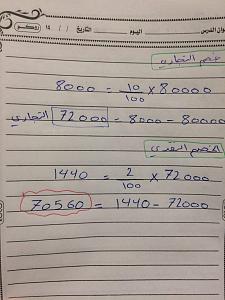 عنوان الدرس اليوم التاريخ / / ١٤
خصم التجاري
8000 = 10/100 × 80000
التجاري 72000 = 8000 - 80000
الخصم النقدي
1440 = 2/100 × 72000
70560 = 1440 - 72000